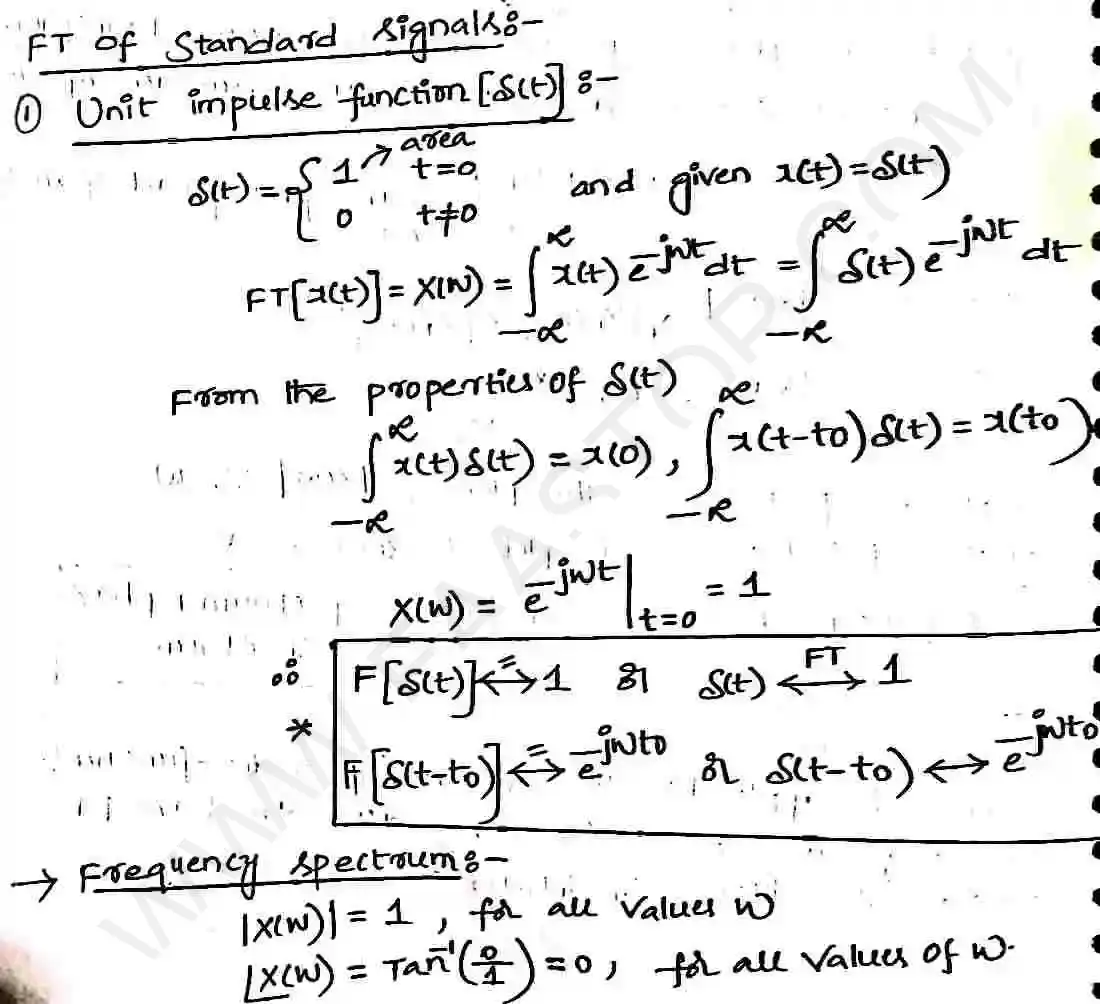 FT of Standard signals:-
① Unit impulse function [δ(t)] :-
δ(t) = { 1 → area t=0
0 t≠0 and given x(t) = δ(t)
FT[x(t)] = X(w) = ∫_{-∞}^{∞} x(t) e^{-jwt} dt = ∫_{-∞}^{∞} δ(t) e^{-jwt} dt
From the properties of δ(t)
∫_{-∞}^{∞} x(t) δ(t) = x(0), ∫_{-∞}^{∞} x(t-to) δ(t) = x(to)
X(w) = e^{-jwt} |_{t=0} = 1
∴ F[δ(t)] ⟷= 1 or δ(t) ⟷^{FT} 1
* F[δ(t-to)] ⟷= e^{-jwto} or δ(t-to) ⟷ e^{-jwto}
→ Frequency spectrum:-
|X(w)| = 1, for all values w
∠X(w) = Tan⁻¹(0/1) = 0, for all values of w.